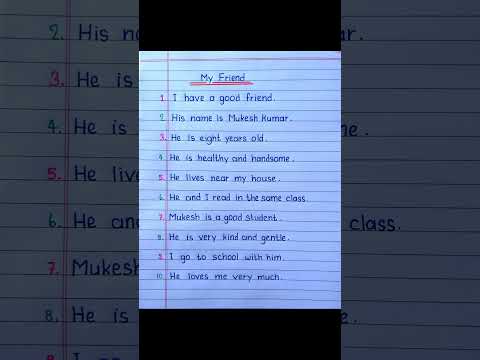 My Friend
1. I have a good friend.
2. His name is Mukesh Kumar.
3. He is eight years old.
4. He is healthy and handsome.
5. He lives near my house.
6. He and I read in the same class.
7. Mukesh is a good student.
8. He is very kind and gentle.
9. I go to school with him.
10. He loves me very much.